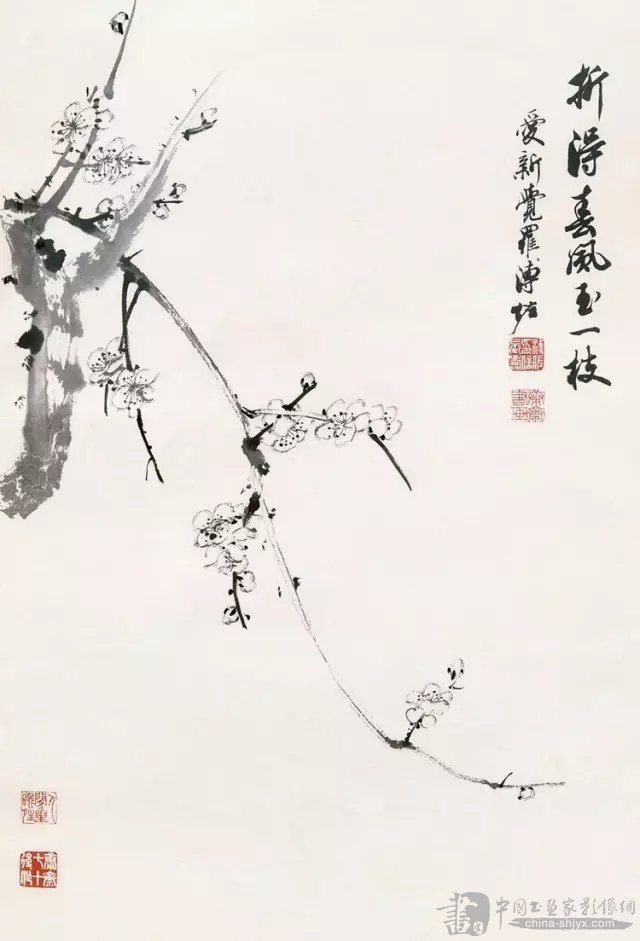 折得春風玉一枝
愛新覺羅溥佐
中國书画家影像網
china-shjyx.com